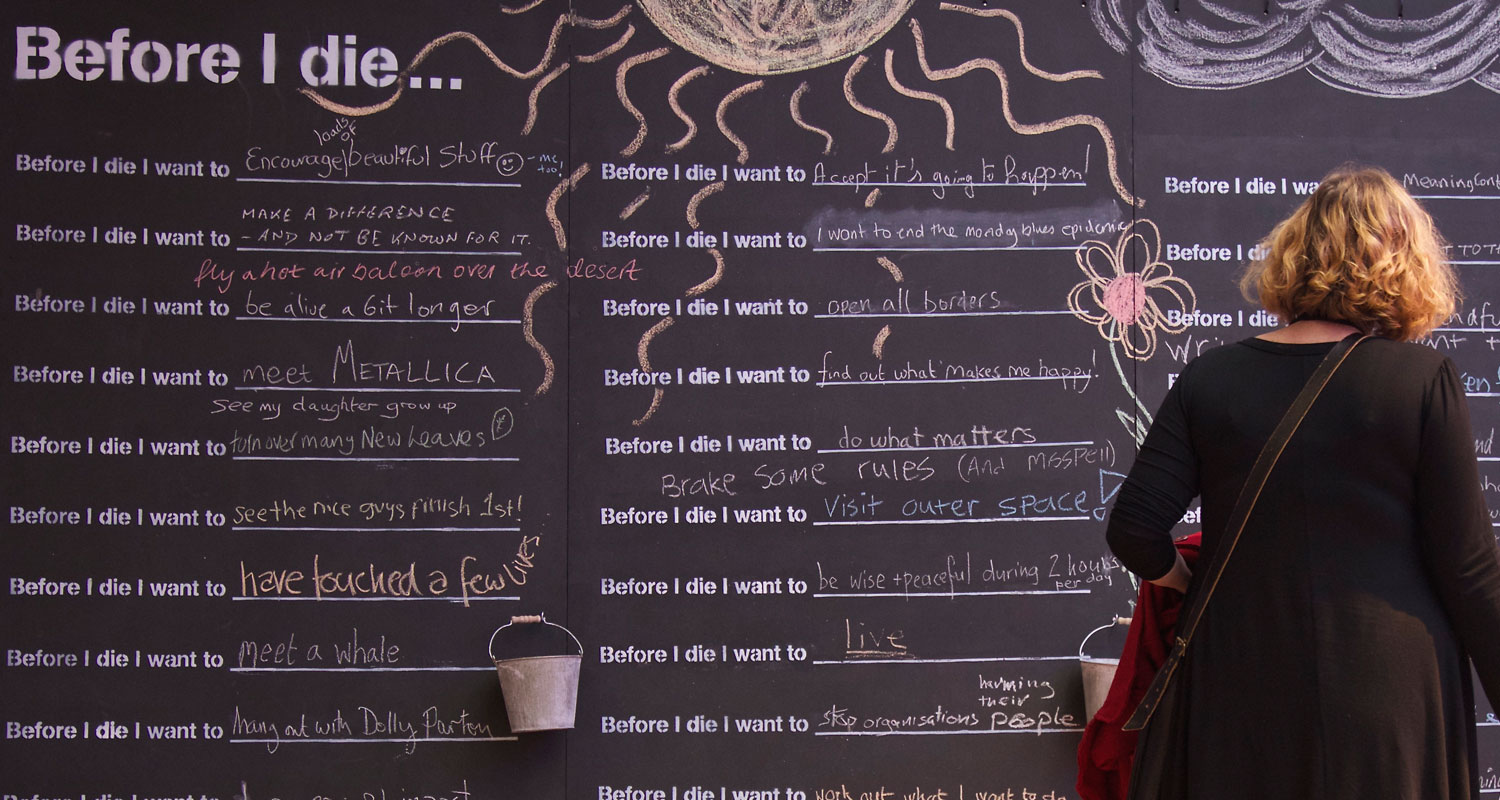 Before I die...
loads of
Before I die I want to Encourage beautiful Stuff - me too!
MAKE A DIFFERENCE
Before I die I want to - AND NOT BE KNOWN FOR IT.
fly a hot air baloon over the desert
Before I die I want to be alive a bit longer
Before I die I want to meet METALLICA
See my daughter grow up
Before I die I want to turn over many New Leaves
Before I die I want to see the nice guys finish 1st!
Before I die I want to have touched a few lives
Before I die I want to meet a whale
Before I die I want to hang out with Dolly Parton
Before I die I want to Accept it's going to happen!
Before I die I want to I want to end the monday blues epidemic
Before I die I want to open all borders
Before I die I want to find out what makes me happy!
Before I die I want to do what matters
Brake Some rules (And misspell)
Before I die I want to Visit outer space!
Before I die I want to be wise + peaceful during 2 hours per day
Before I die I want to Live
harming their
Before I die I want to stop organisations people
Before I die I want to work out what I want to do
Before I die I wa
Before I die
Before I die